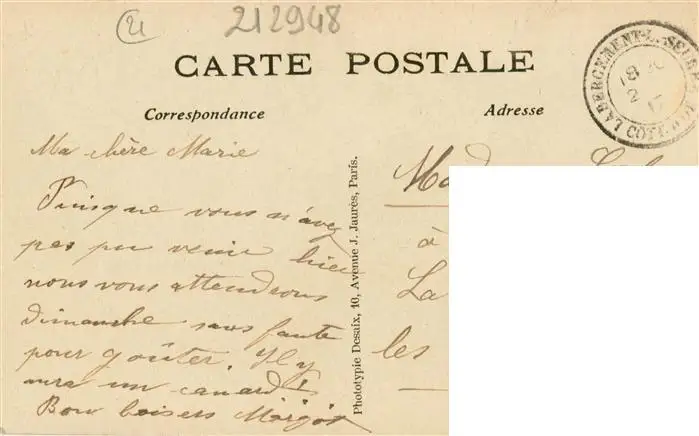 21
212948
CARTE POSTALE
Correspondance
Adresse
LABERGEMENT-L-SEURRE
18
2
COTE D'OR
Ma chère Marie
Puisque vous n'avez
pas pu venir hier
nous vous attendrons
dimanche sans faute
pour goûter. Il y
aura un canard !
Bons baisers Margot
Phototypie Desaix, 10, Avenue J. Jaurès, Paris.
à
La
les